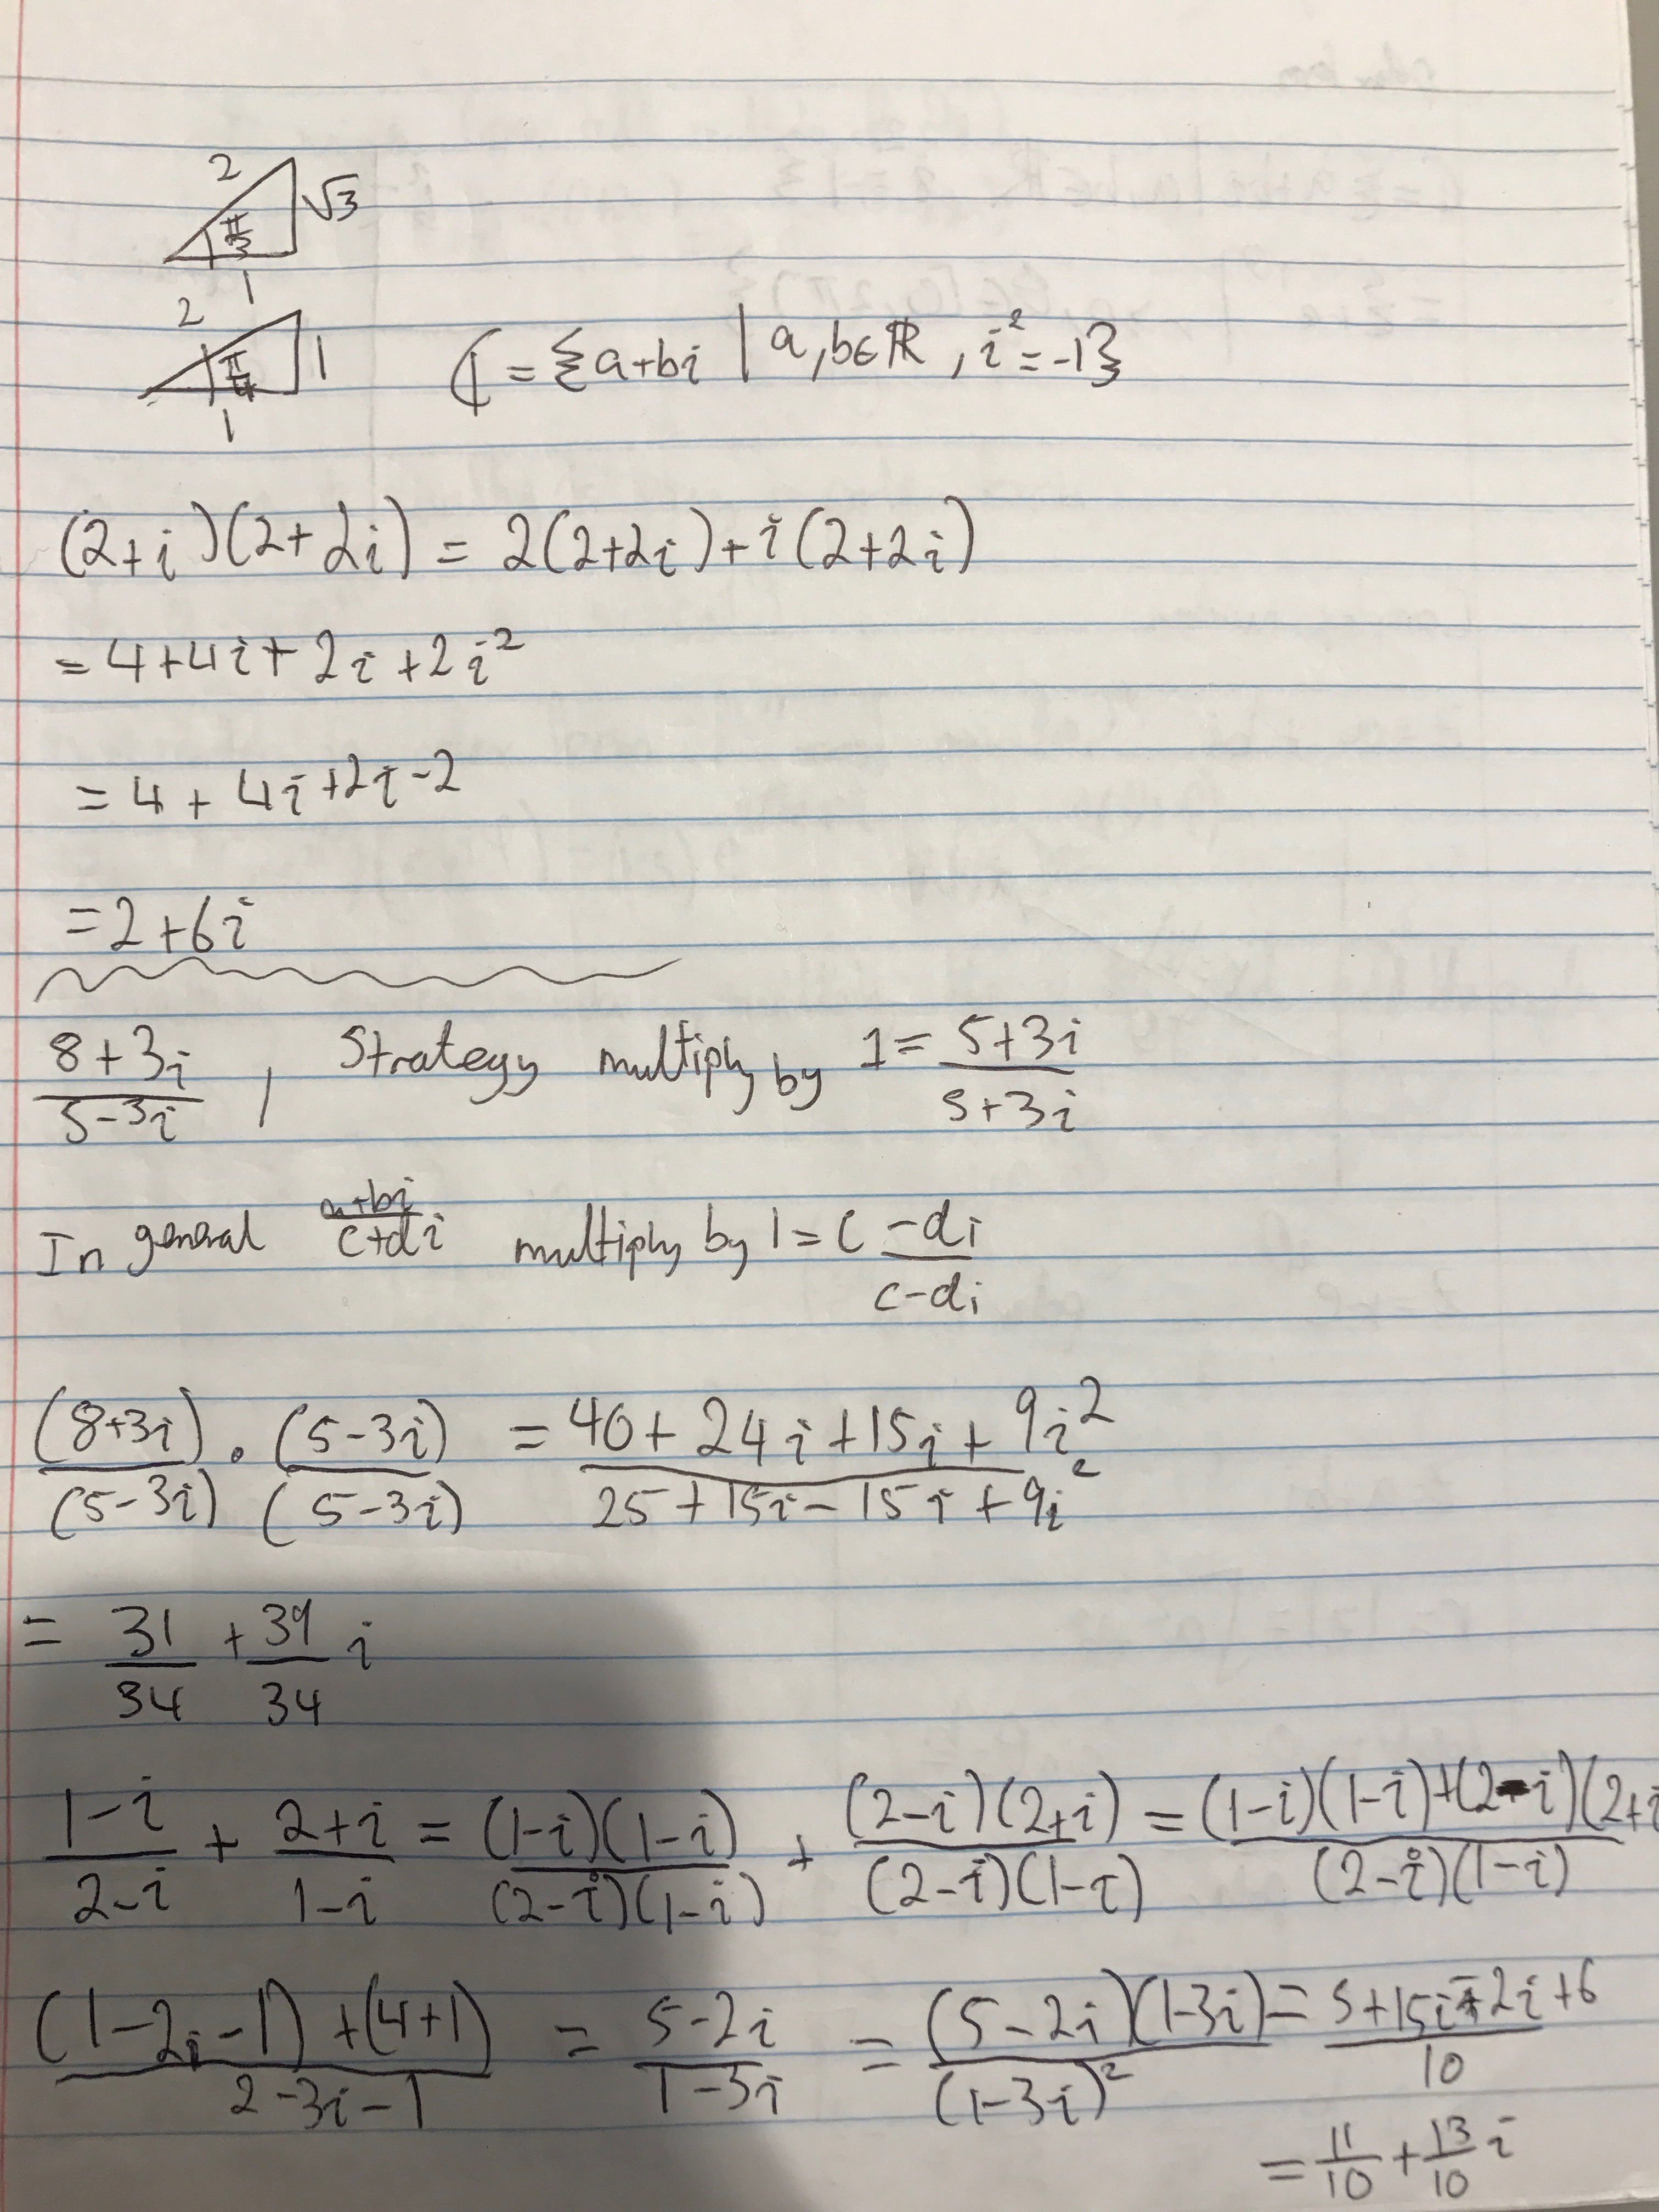 2
√3
π/3
1
2
1
π/4
1
ℂ = {a+bi | a,b∈ℝ, i²=-1}
(2+i)(2+2i) = 2(2+2i)+i(2+2i)
= 4+4i+2i+2i²
= 4+4i+2i-2
= 2+6i
(8+3i)/(5-3i), Strategy multiply by 1 = (5+3i)/(5+3i)
In general (a+bi)/(c+di) multiply by 1 = (c-di)/(c-di)
(8+3i)/(5-3i) · (5-3i)/(5-3i) = (40+24i+15i+9i²)/(25+15i-15i+9i²)
= 31/34 + 39/34 i
(1-i)/(2-i) + (2+i)/(1-i) = (1-i)(1-i)/(2-i)(1-i) + (2-i)(2+i)/(2-i)(1-i) = (1-i)(1-i)+(2-i)(2+i/(2-i)(1-i)
((1-2i-1)+(4+1))/(2-3i-1) = (5-2i)/(1-3i) = (5-2i)(1-3i)/(1-3i)² = (5+15i-2i+6)/10
= 11/10 + 13/10 i